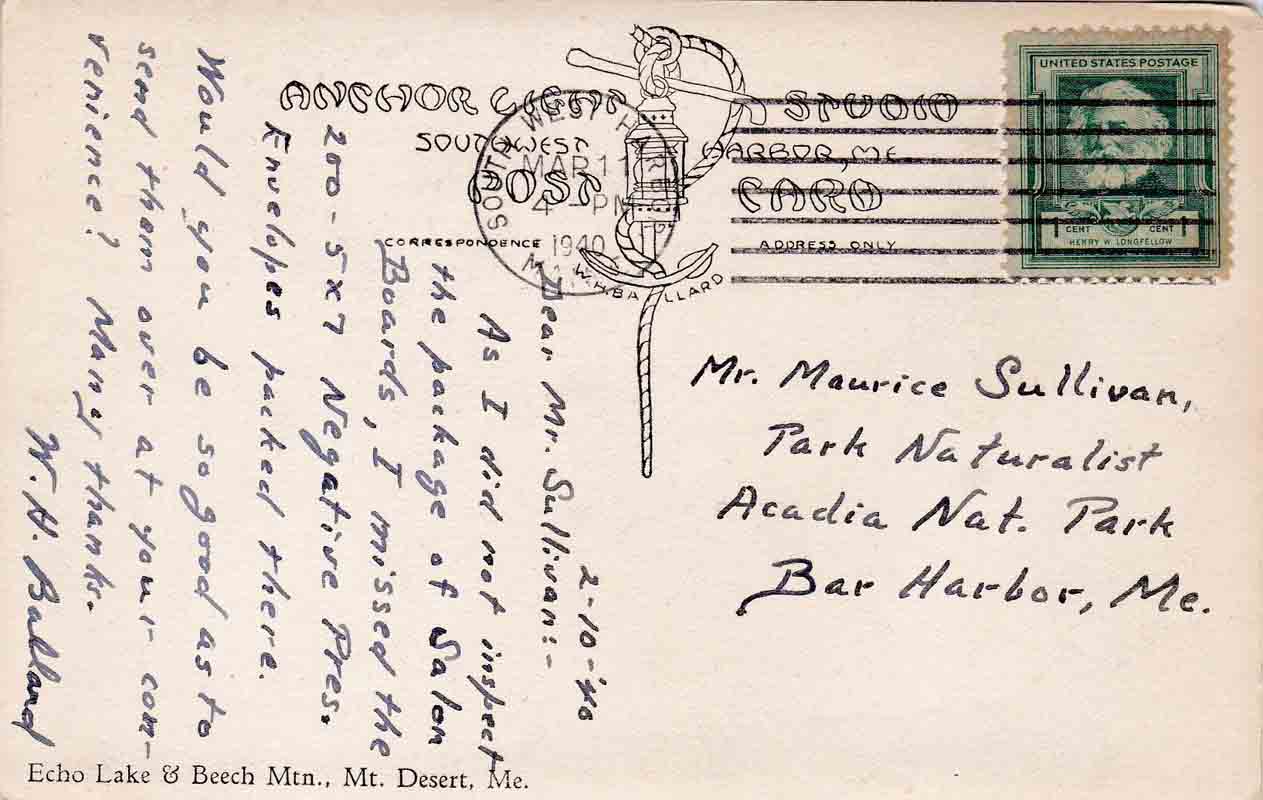 ANCHOR LIGHT STUDIO
SOUTHWEST HARBOR, ME.
POST CARD
CORRESPONDENCE ADDRESS ONLY
W.H. BALLARD
MAR 11
4 - PM
1940
UNITED STATES POSTAGE
1 CENT CENT 1
HENRY W. LONGFELLOW
2-10-'40
Dear Mr. Sullivan:-
As I did not inspect
the package of Salon
Boards, I missed the
200 - 5x7 Negative Pres.
Envelopes packed there.
Would you be so good as to
send them over at your con-
venience? Many thanks.
W. H. Ballard
Mr. Maurice Sullivan,
Park Naturalist
Acadia Nat. Park
Bar Harbor, Me.
Echo Lake & Beech Mtn., Mt. Desert, Me.